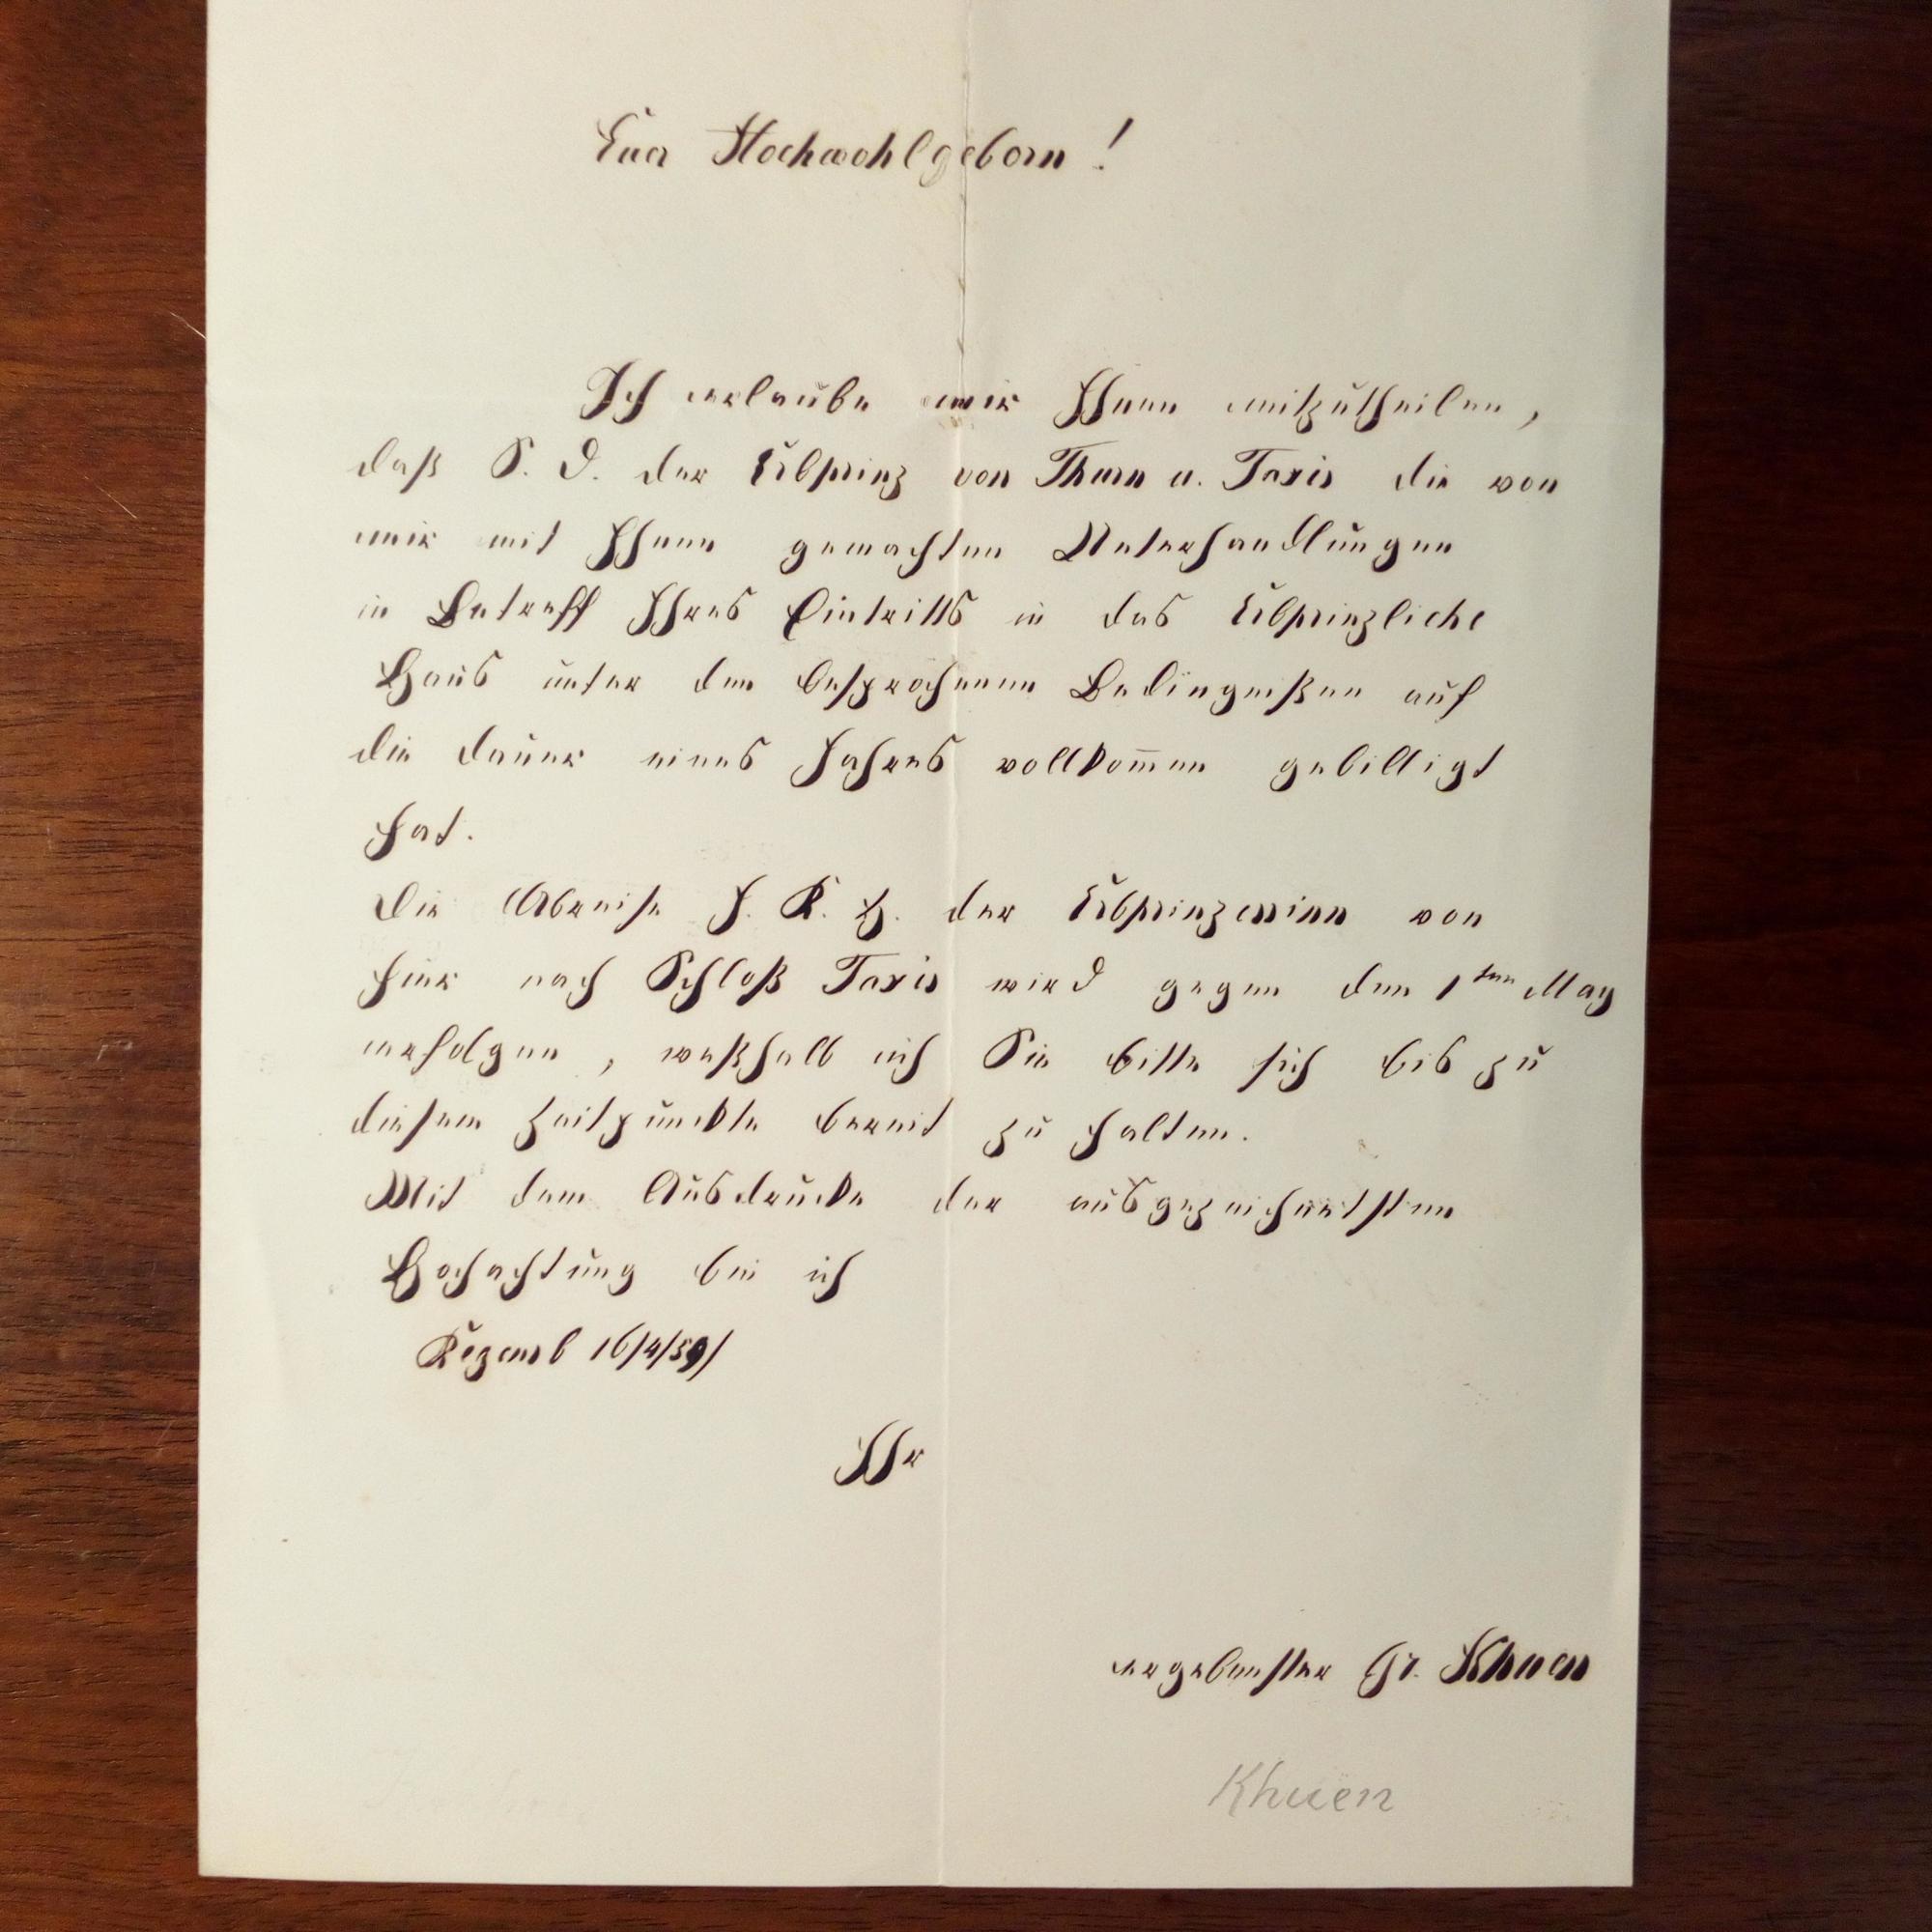 Euer Hochwohlgeborn!
Ich erlaube mir Ihnen mitzutheilen,
daß S. D. der Erbprinz von Thurn u. Taxis die von
mir mit Ihnen gemachten Unterhandlungen
in Betreff Ihres Eintritts in das Erbprinzliche
Haus unter den besprochenen Bedingnißen auf
die Dauer eines Jahres vollkom̅en gebilligt
hat.
Die Abreise I. K. H. der Erbprinzessinn von
hier nach Schloß Taxis wird gegen den 1ten May
erfolgen, weßhalb ich Sie bitte sich bis zu
diesem Zeitpunckte bereit zu halten.
Mit dem Ausdrucke der ausgezeichnetsten
Hochachtung bin ich
16/4/59/
Ihr
ergebenster Gr. Khuen
Khuen